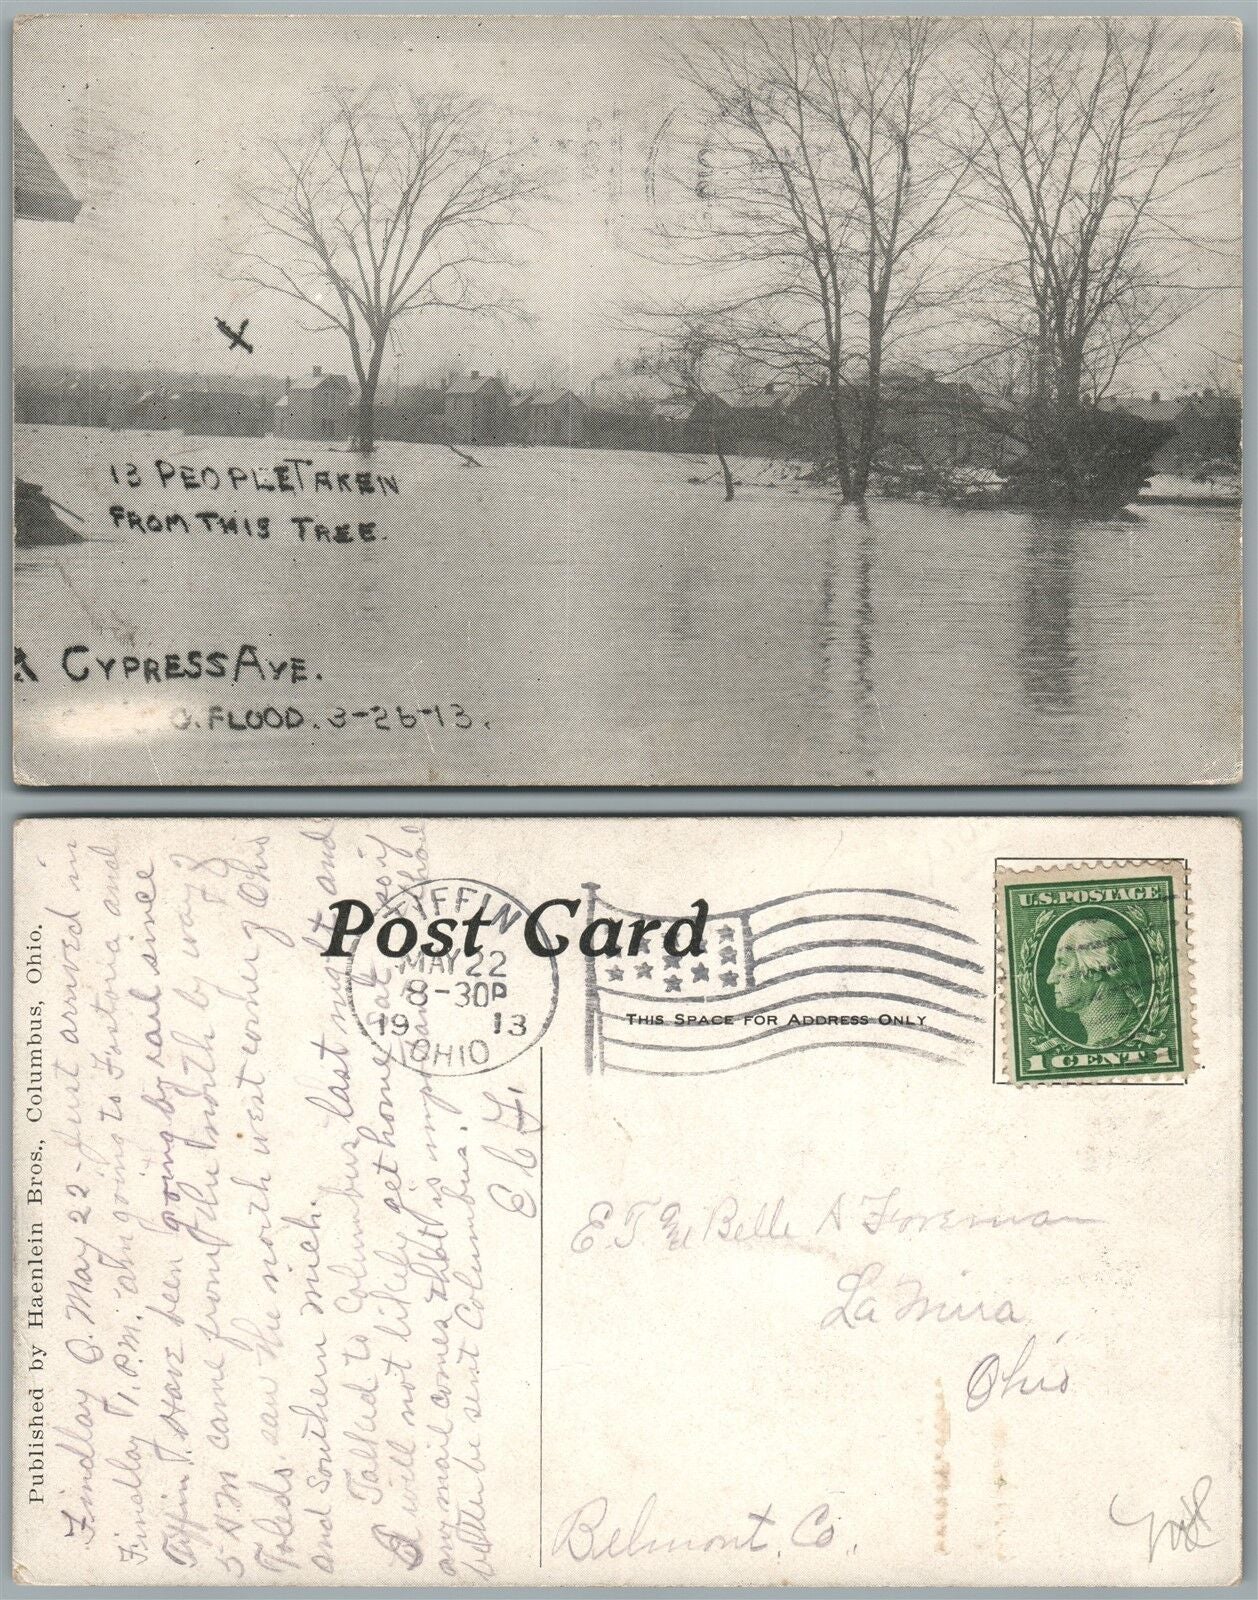 13 PEOPLE TAKEN
FROM THIS TREE.
CYPRESS AVE.
O. FLOOD. 3-26-13.
Published by Haenlein Bros., Columbus, Ohio.
Findlay O. May 22 - Just arrived in
Findlay 7. P.M. am going to Fostoria and
Tiffin Have been going by rail since
5 A.M came from the north by way of
Toledo saw the north west corner of Ohio
and Southern Mich.
Talked to Columbus last night and
will not likely get home Sat so if
any mail comes that is important
better be sent Columbus.
E C F.
Post Card
TIFFIN
MAY 22
8-30P
1913
OHIO
THIS SPACE FOR ADDRESS ONLY
U.S. POSTAGE
1 CENT 1
E. T. Belle A Foreman
La Mira
Ohio
Belmont, Co.